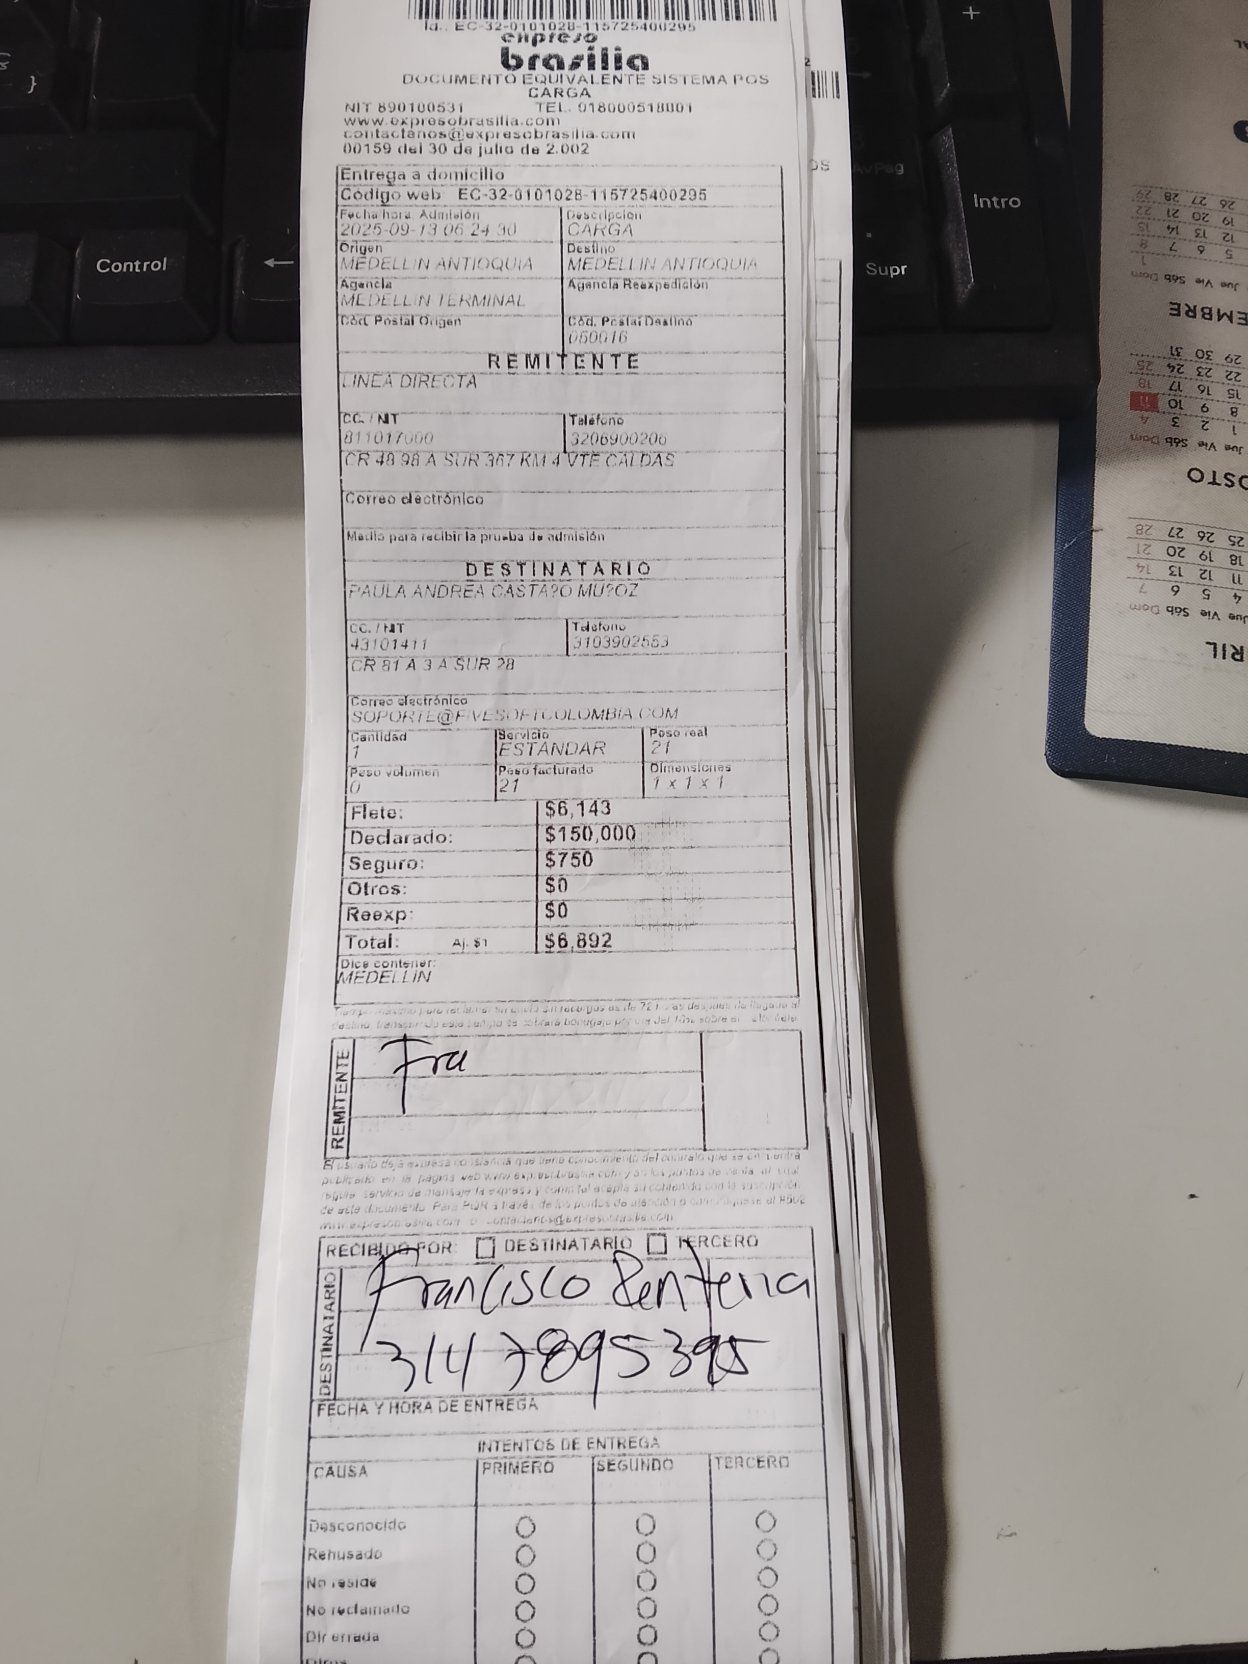 Id.: EC-32-0101028-115725400295
expreso
brasilia
DOCUMENTO EQUIVALENTE SISTEMA POS
CARGA
NIT 890100531 TEL. 018000518001
www.expresobrasilia.com
contactanos@expresobrasilia.com
00159 del 30 de julio de 2.002
Entrega a domicilio
Código web: EC-32-0101028-115725400295
Fecha hora Admisión Descripción
2025-09-13 06 24 30 CARGA
Origen Destino
MEDELLIN ANTIOQUIA MEDELLIN ANTIOQUIA
Agencia Agencia Reexpedición
MEDELLIN TERMINAL
Cód. Postal Origen Cód. Postal Destino
050016
REMITENTE
LINEA DIRECTA
CC. / NIT Teléfono
811017000 3206900206
CR 48 98 A SUR 367 KM 4 VTE CALDAS
Correo electrónico
Medio para recibir la prueba de admisión
DESTINATARIO
PAULA ANDREA CASTA?O MU?OZ
CC. / NIT Teléfono
43101411 3103902553
CR 81 A 3 A SUR 28
Correo electrónico
SOPORTE@FIVESOFTCOLOMBIA.COM
Cantidad Servicio Peso real
1 ESTANDAR 21
Peso volumen Peso facturado Dimensiones
0 21 1 x 1 x 1
Flete: $6,143
Declarado: $150,000
Seguro: $750
Otros: $0
Reexp: $0
Total: Aj. $1 $6,892
Dice contener:
MEDELLIN
REMITENTE
Fra
RECIBIDO POR: DESTINATARIO TERCERO
DESTINATARIO
Francisco Renteria
3147895395
FECHA Y HORA DE ENTREGA
INTENTOS DE ENTREGA
CAUSA PRIMERO SEGUNDO TERCERO
Desconocido
Rehusado
No reside
No reclamado
Dir errada
Otros
Control
Intro
Supr
AvPag